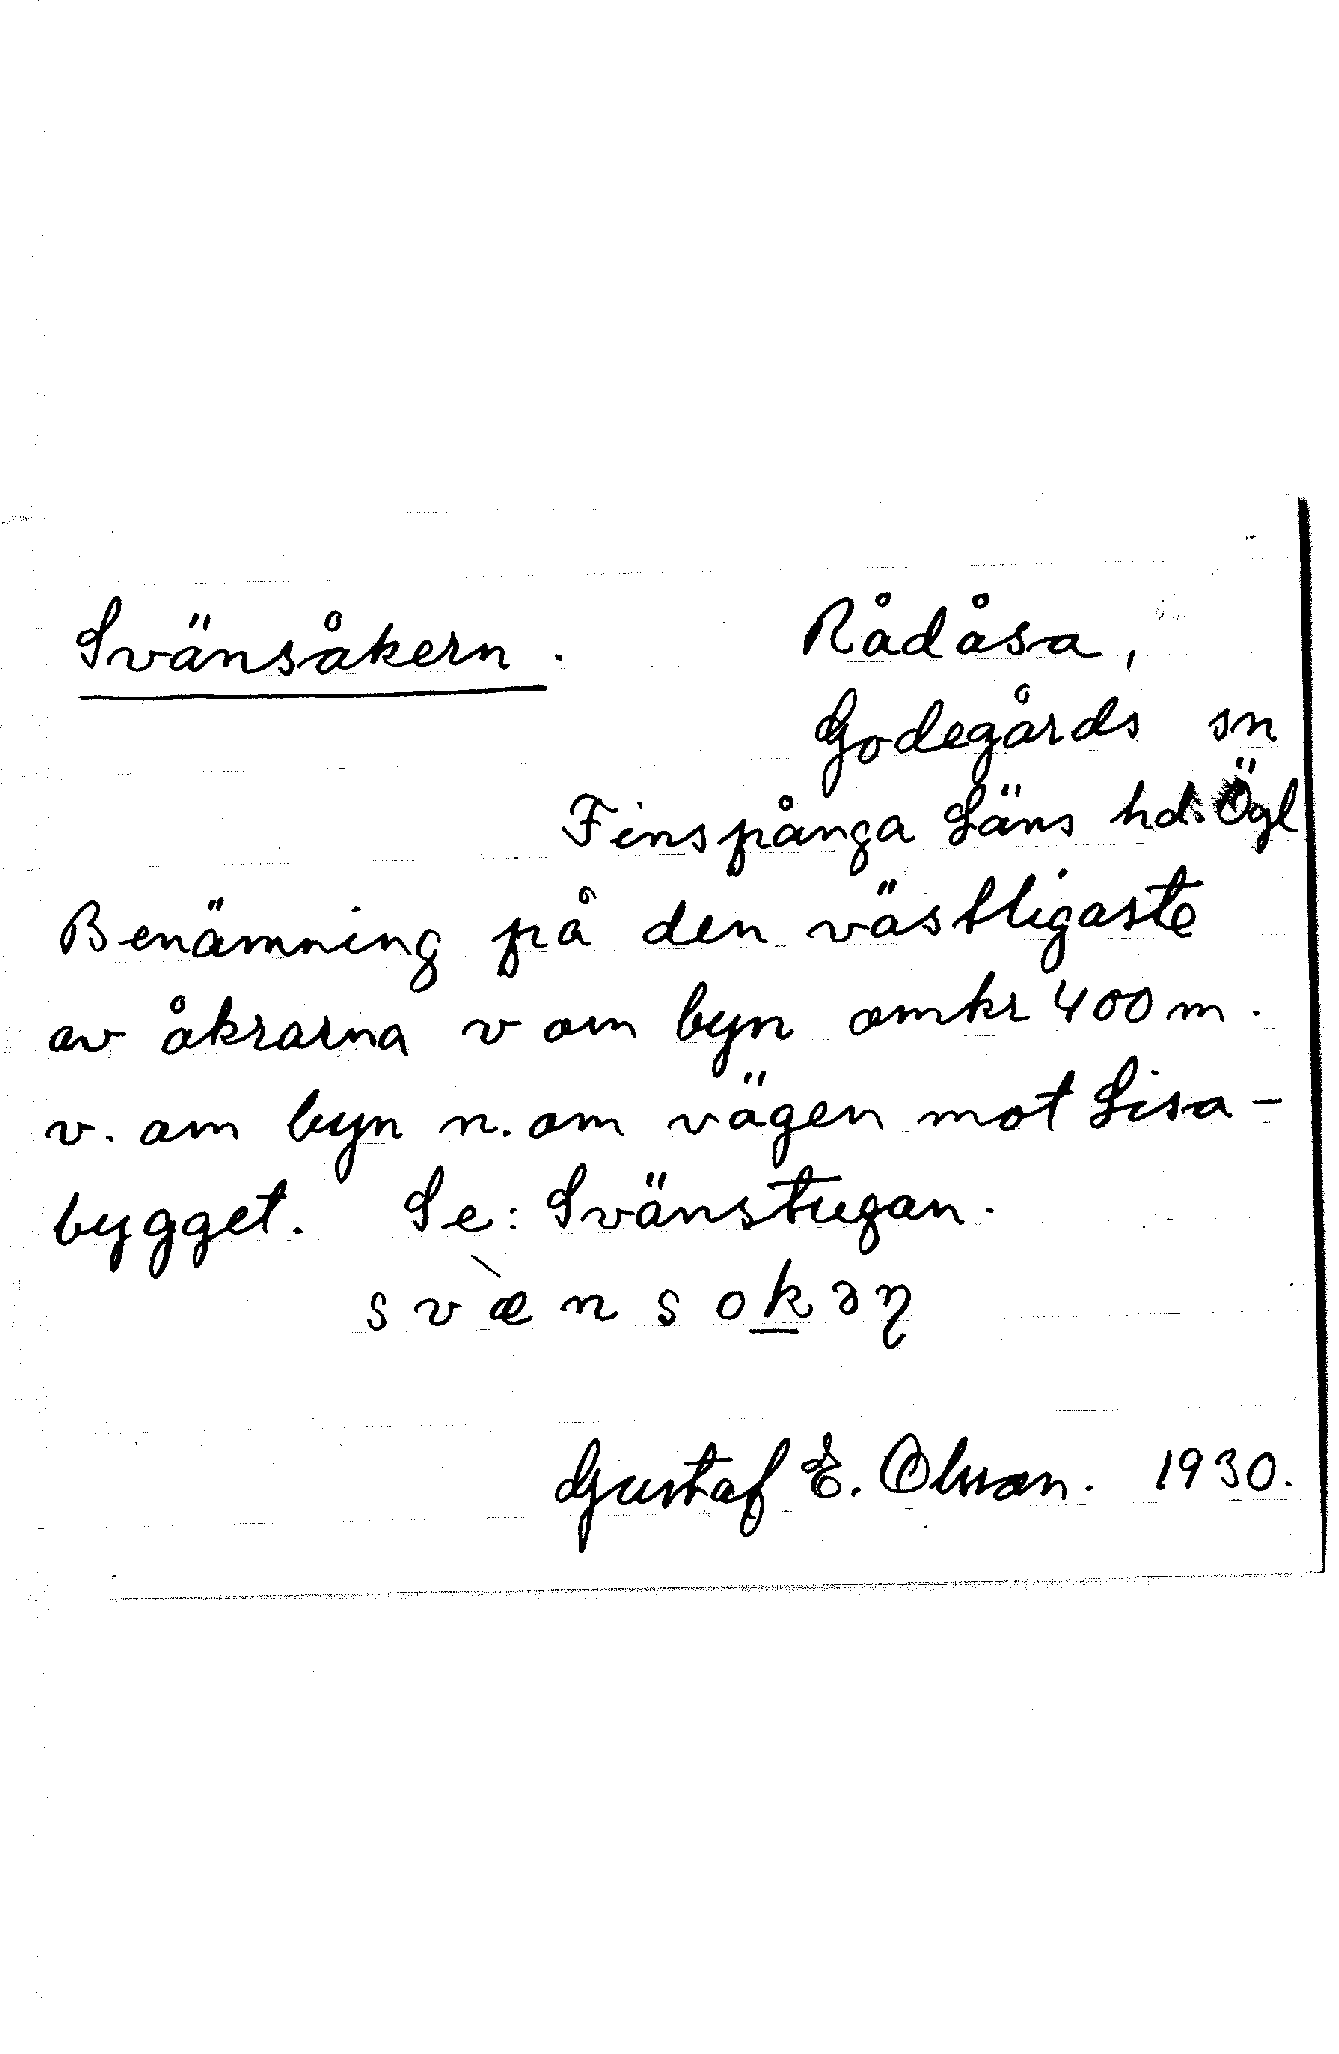 Svänsåkern. Rådåsa,
Godegårds sn
Finspånga Läns hd. Ögl
Benämning på den västligaste
av åkrarna v om byn omkr 400 m.
v. om byn n. om vägen mot Lisa-
bygget. Se: Svänstugan.
svæ̀nsokəɳ
Gustaf E. Olsson. 1930.